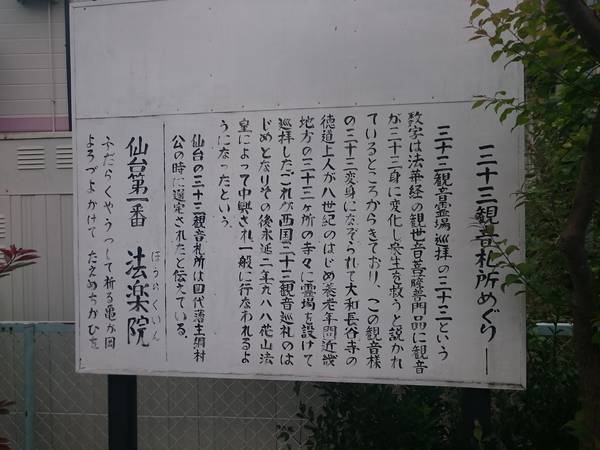 三十三観音札所めぐり
三十三観音霊場巡拝の三十三という
数字は法華経の観世音菩薩普門品に観音
が三十三身に変化し衆生を救うと説かれ
ているところからきており、この観音様
の三十三変身になぞらられて大和長谷寺の
徳道上人が八世紀のはじめ養老年間近畿
地方の三十三ヶ所の寺々に霊場を設けて
巡拝したこれが西国三十三観音巡礼のは
じめとなりその後永延二年九八八花山法
皇によって中興され一般に行なわれるよ
うになったという。
仙台の三十三観音札所は四代藩主綱村
公の時に選定されたと伝えている。
仙台第一番 法楽院
ほうらくいん
ふだらくやうつして祈る亀が岡
よろづよかけて たえぬちかひを